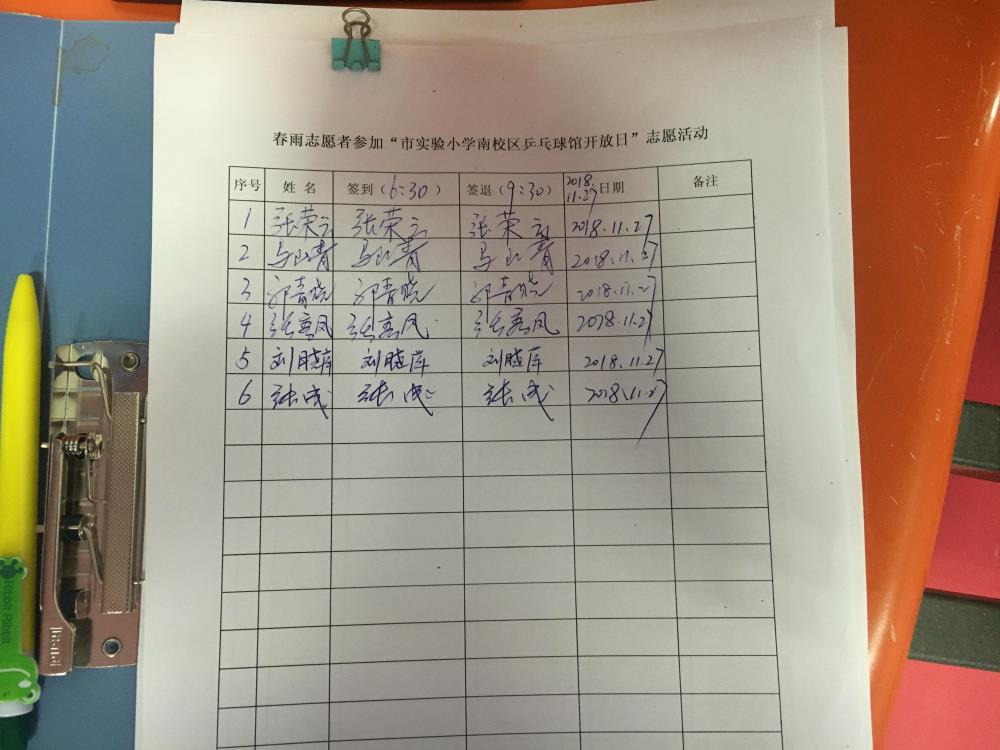 春雨志愿者参加“市实验小学南校区乒乓球馆开放日”志愿活动
序号 姓 名 签到（6:30） 签退（9:30） 2018.11.27日期 备注
1 张荣云 张荣云 张荣云 2018.11.27
2 马山青 马山青 马山青 2018.11.27
3 郭青晓 郭青晓 郭青晓 2018.11.27
4 张凤 张凤 张凤 2018.11.27
5 刘晓库 刘晓库 刘晓库 2018.11.27
6 张成 张成 张成 2018.11.27
Ribbit Ribbit